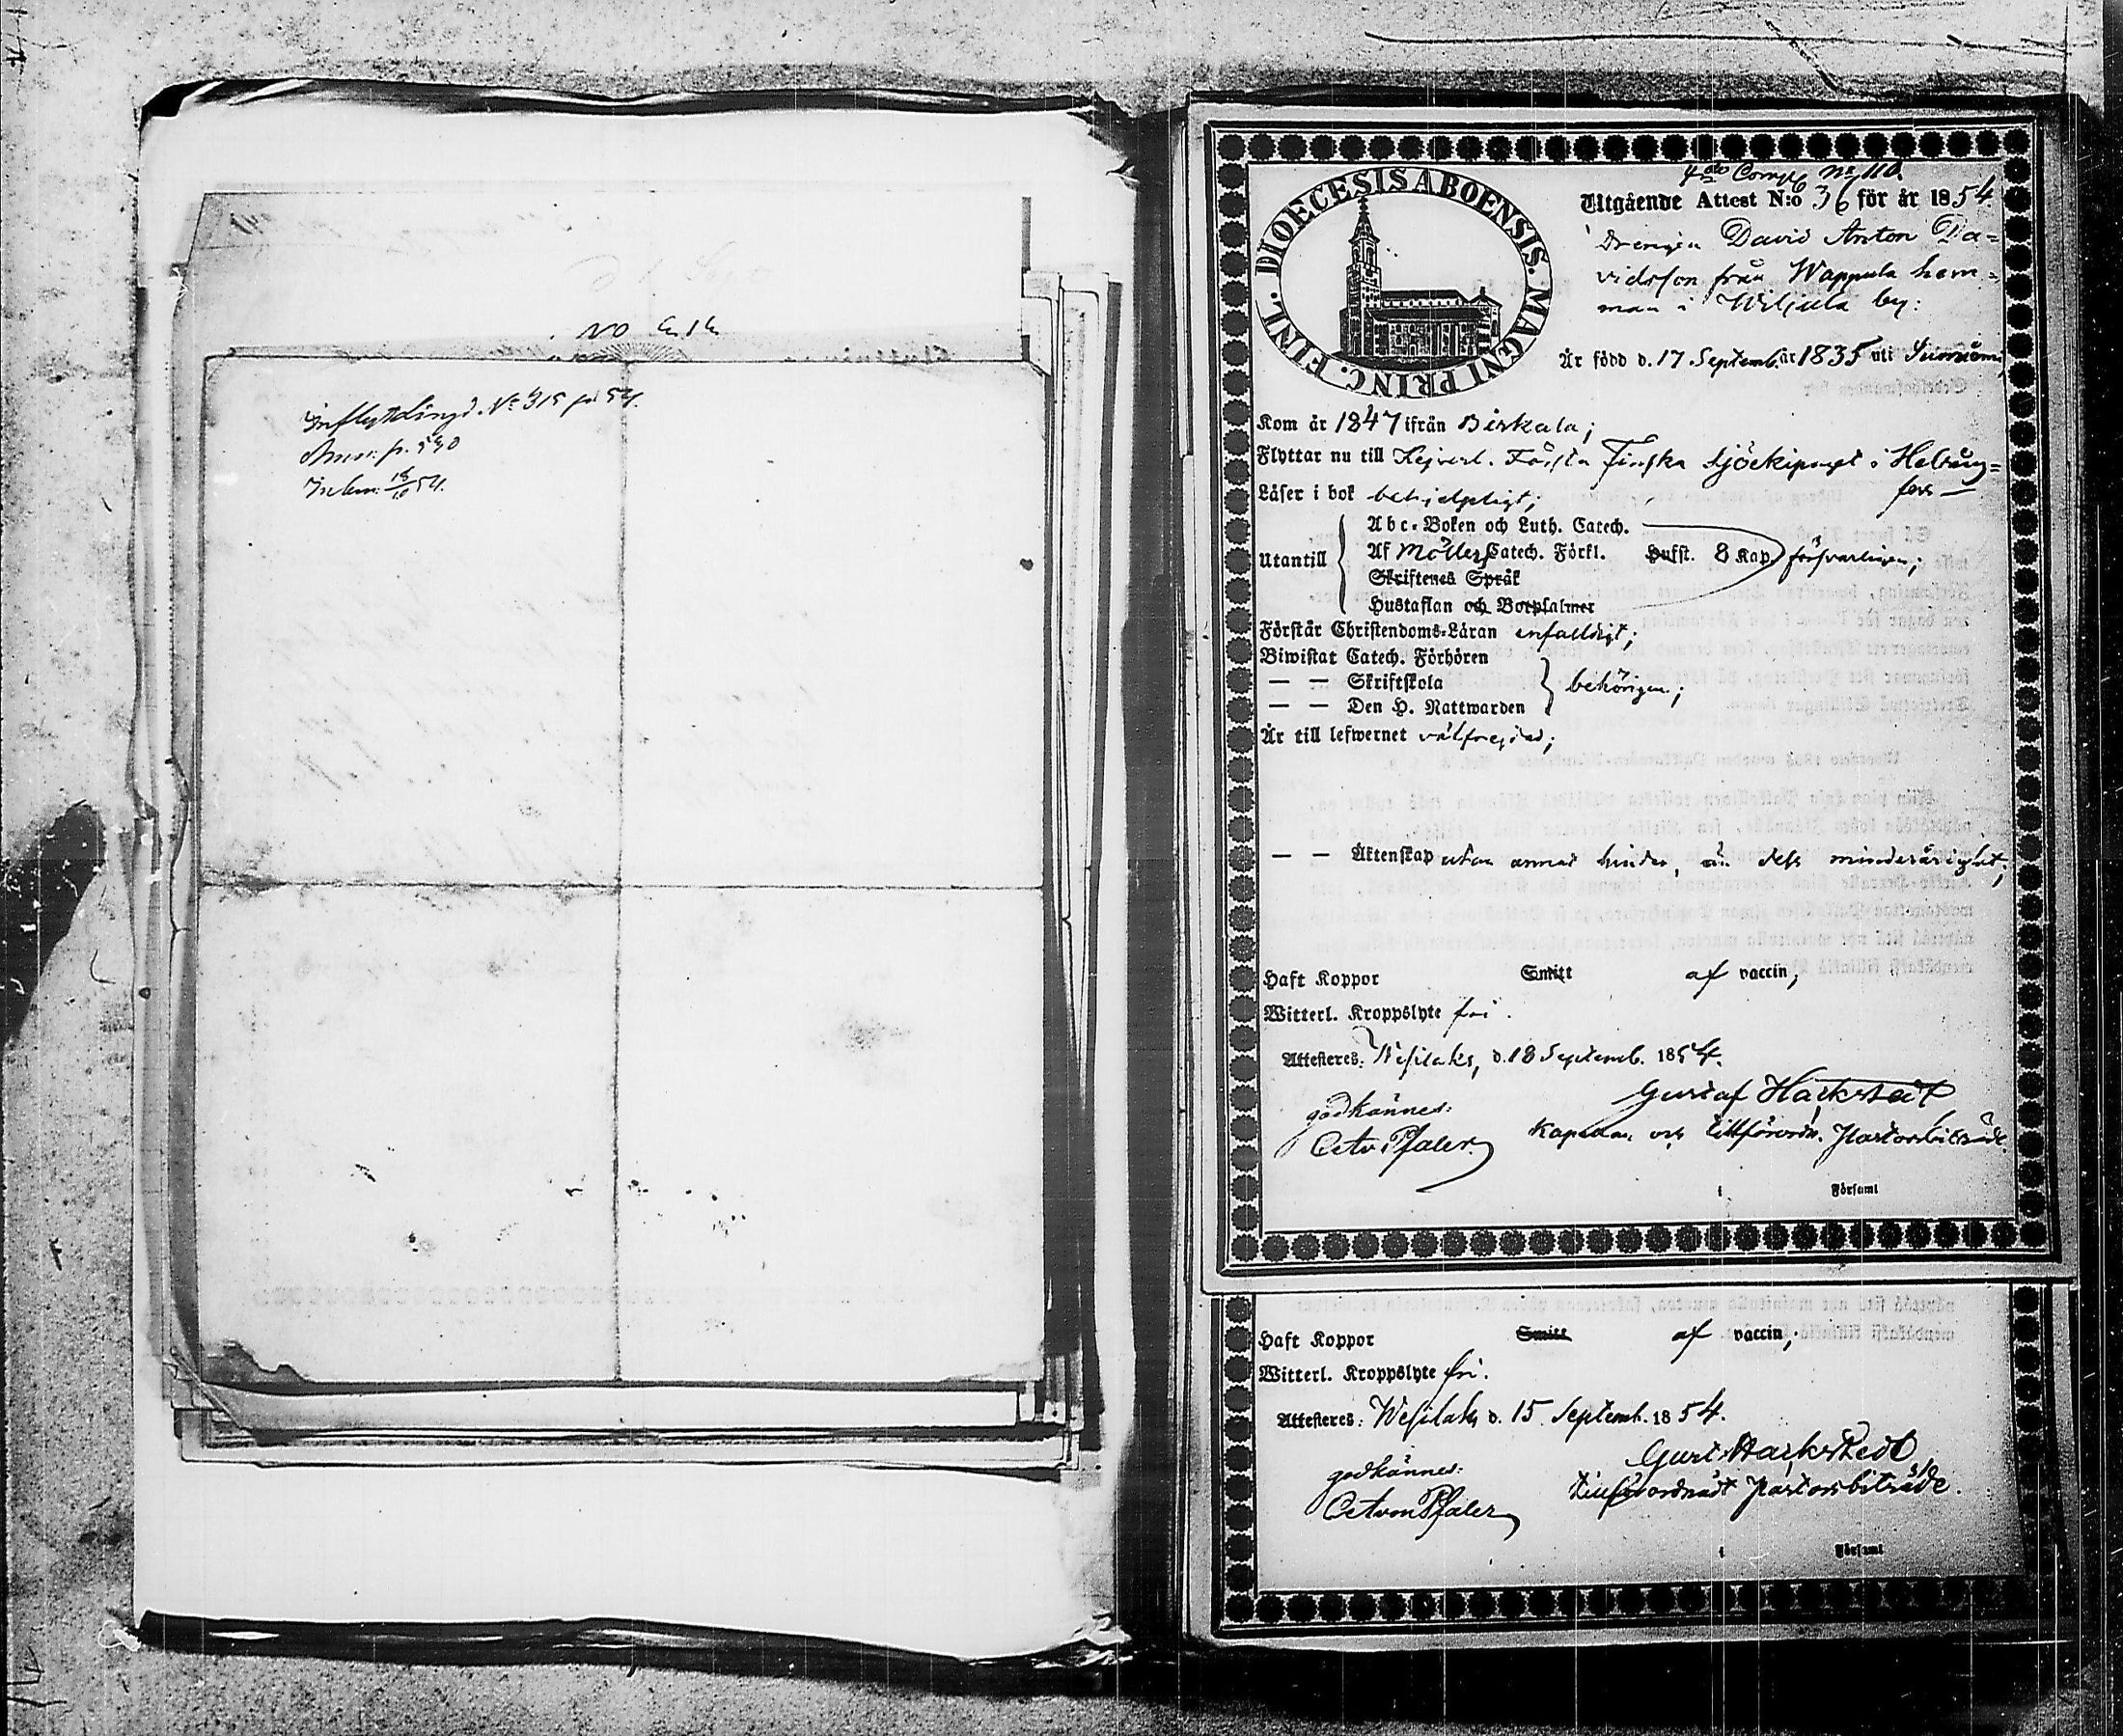 Inflyttlängd. No 315 för 54.
p. 530
54.
DIOECESIS ABOENSIS. MAGNI PRINC. FINL.
4de Comp. No 110.
Utgående Attest N:o 36 för år 1854.
Drengen David Anton Da=
vidsson från Wappula hem=
man i Wiljala by:
Är född d. 17 Septemb. år 1835 uti
Kom år 1847 ifrån Birkala;
Flyttar nu till Kejserl. Första Finska Sjöekipaget i Helsing=
fors —
Läser i bok behjelpligt;
Utantill
Abc-Boken och Luth. Catech.
Af Möllers Catech. Förkl. Hufst. 8 Kap. försvarligen;
Skriftenes Språk
Hustaflan och Botpsalmer
Förstår Christendoms-Läran enfaldigt;
Biwistat Catech. Förhören
— — Skriftskola behörigen;
— — Den H. Nattwarden
Är till lefwernet välfrejdad;
— — Äktenskap utan annat hinder, än dess minderårighet;
Haft Koppor Smitt af vaccin,
Witterl. Kroppslyte fri.
Attesteres: Wesilaks, d. 18 Septemb. 1854.
Gustaf Hackstedt
godkännes:
Kapellan och tillförordn. Pastorsbiträde.
i Förfaml
Haft Koppor Smitt af vaccin,
Witterl. Kroppslyte fri.
Attesteres: Wesilaks d. 15 Septemb. 1854.
Gust Hackstedt
godkännes:
tillförordnadt Pastorsbiträde.
i Förfaml